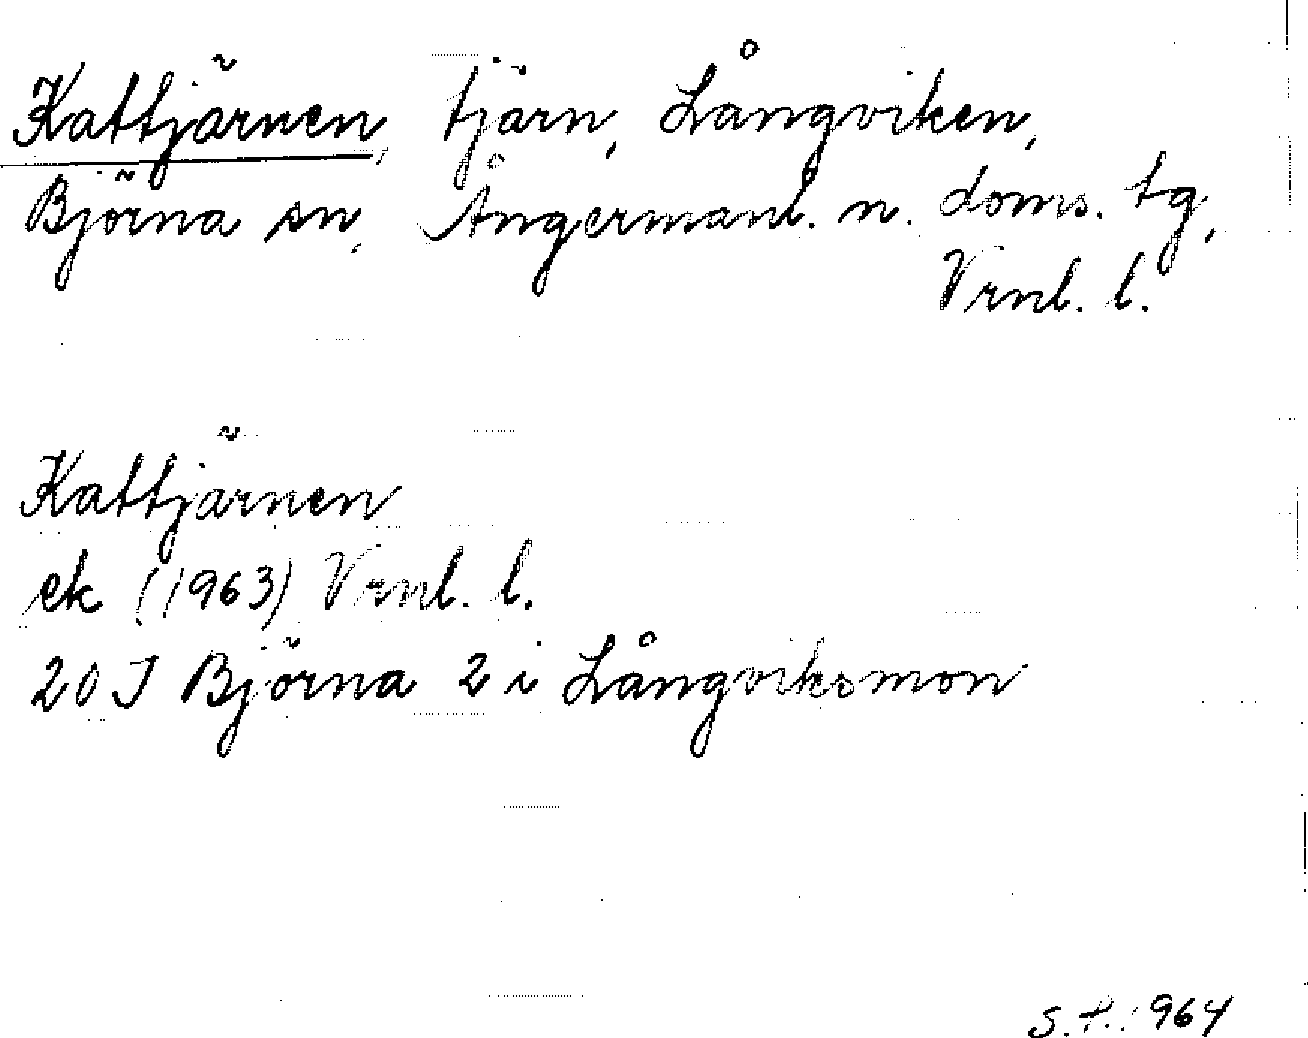 Kattjärnen, tjärn, Långviken,
Björna sn, Ångermanl. n. doms. tg,
Vrnl. l.
Kattjärnen
ek (1963) Vrnl. l.
20 J Björna 2 i Långviksmon
S. P. 1964